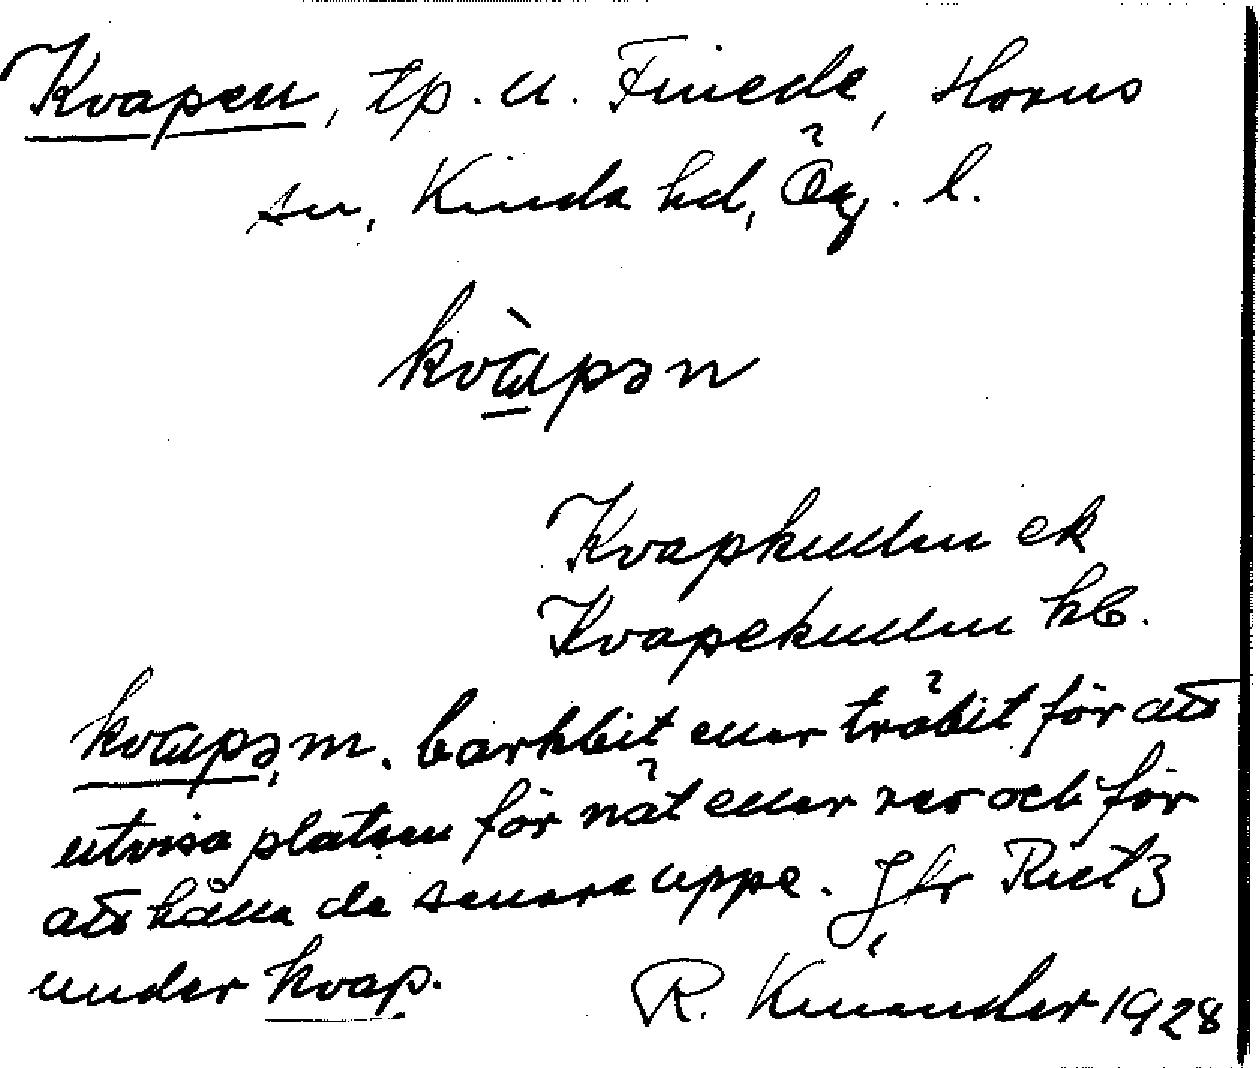 Kvapen, tp. u. Finede, Horns
sn, Kinda hd, Ög. l.
kvàpən
Kvapkullen ek
Kvapekullen hb.
kvapə, m. barkbit eller träbit för att
utvisa platsen för nät eller rev och för
att hålla de senare uppe. Jfr Rietz
under kvap.
R. Kinander 1928